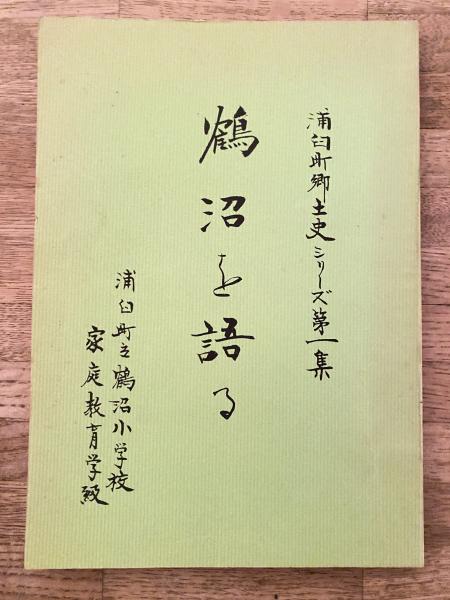 浦臼町郷土史シリーズ第一集
鶴沼を語る
浦臼町立鶴沼小学校
家庭教育学級